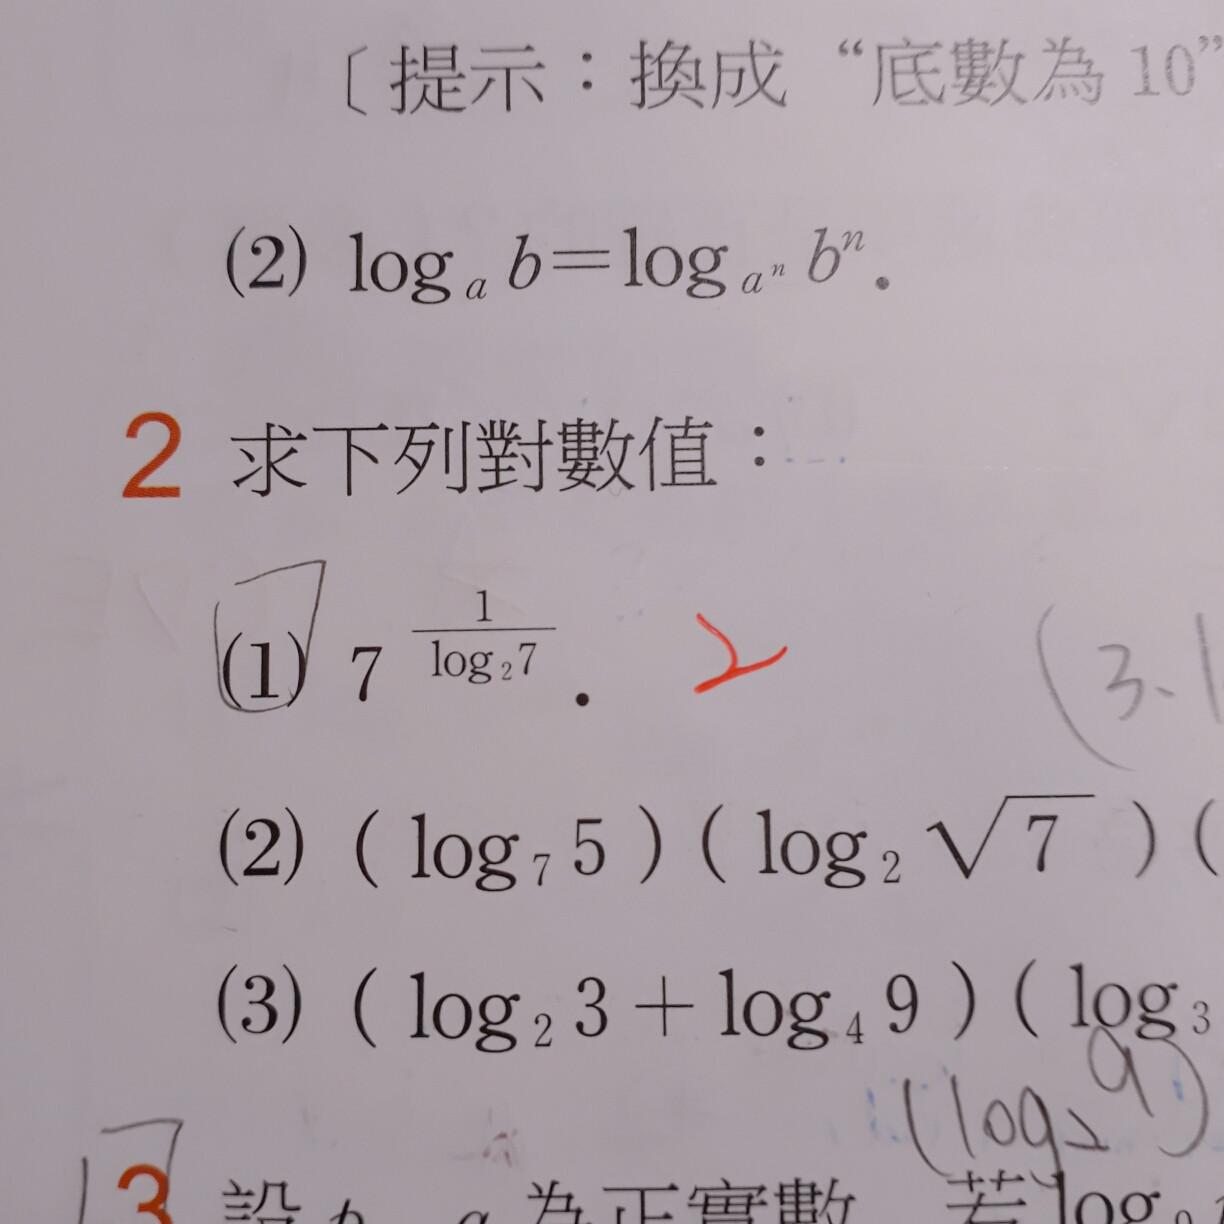 〔提示：換成“底數為 10”
(2) log_a b=log_{a^n} b^n．
2 求下列對數值：
(1) 7^{\frac{1}{log_2 7}}． 2
(3.1
(2) ( log_7 5 ) ( log_2 √7 ) (
(3) ( log_2 3＋log_4 9 ) ( log_3
(log_2 9)
3 設 b、a 為正實數，若 log_9